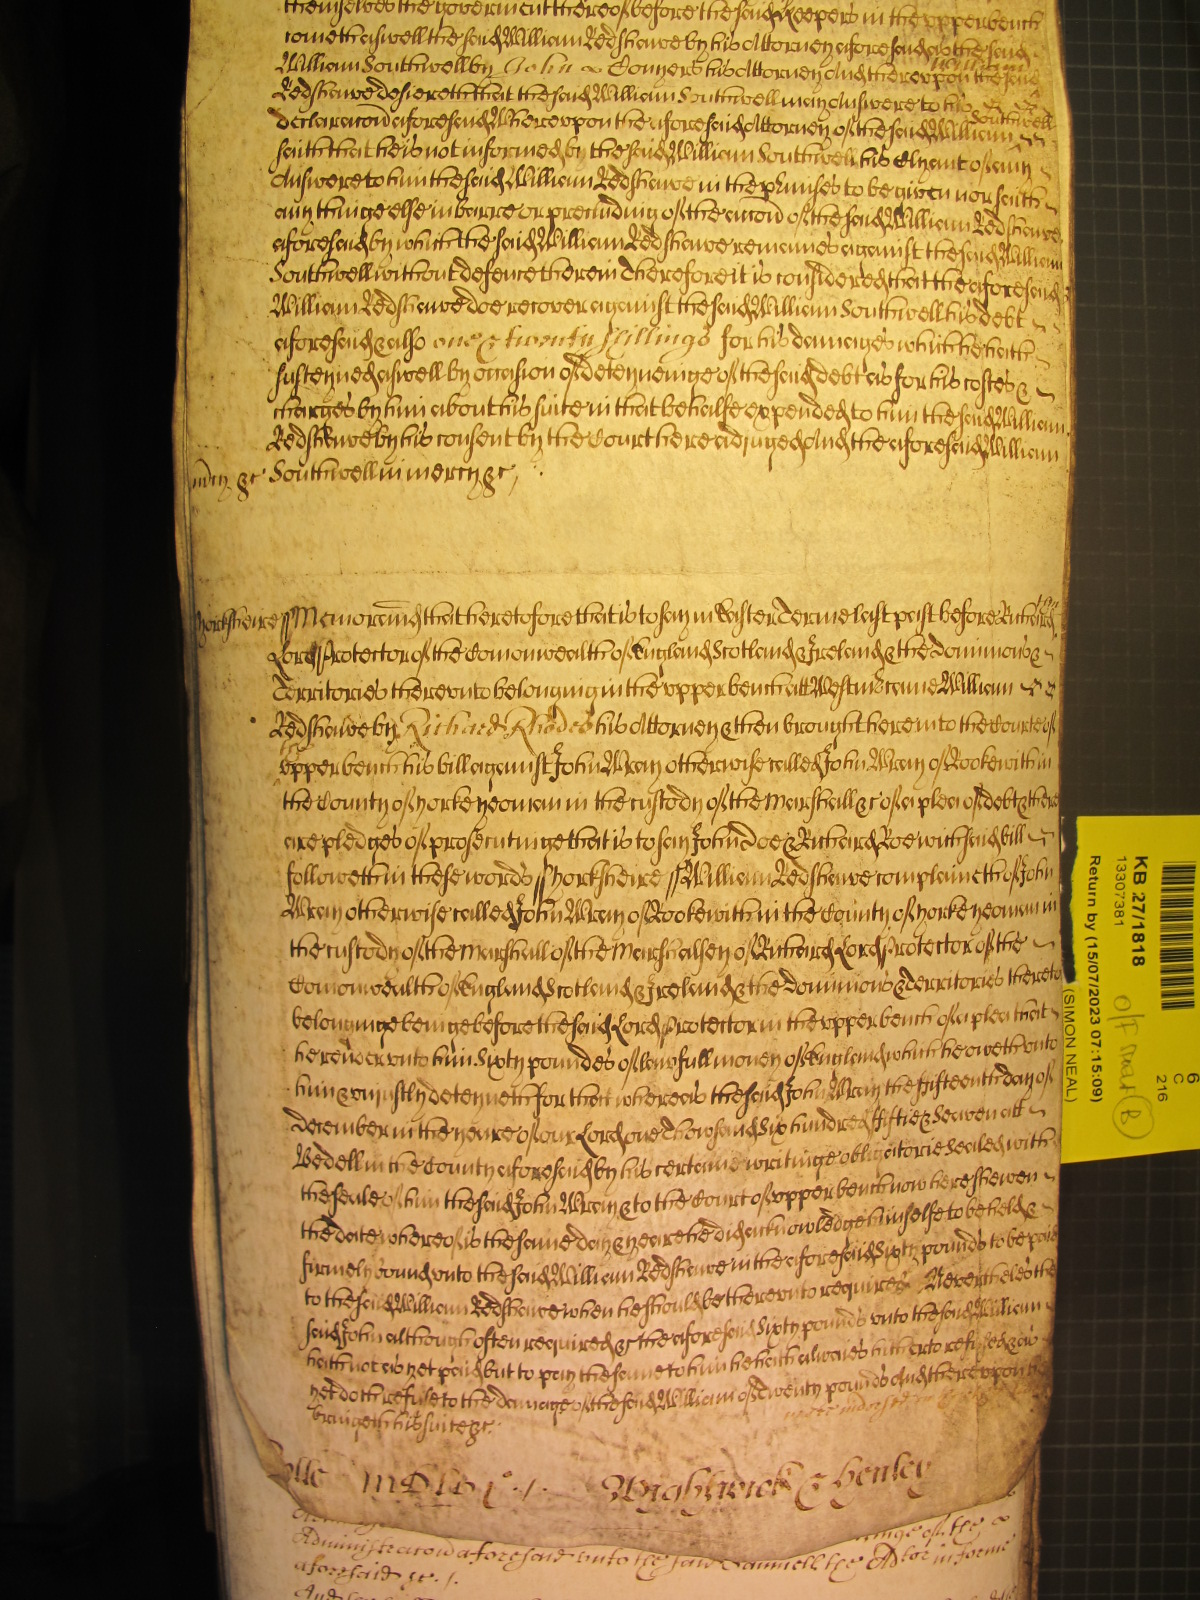 themselves the government thereof before the said Keepers in the upper bench
come th aswell the said William Redshawe by his Attorney aforesaid as the said
William Southwell by John Conyers his Attorney And therevpon the said
William
Redshawe desiereth that the said William Southwell may Answere to his
declaracon aforesaid Wherevpon the aforesaid Attorney of the said William
Southwell
saith that he is not informed by the said William Southwell his Clyant of any
Answere to him the said William Redshawe in the p'mises to be given nor saith
any thinge else in barre or precluding of the accon of the said William Redshawe
aforesaid by which the said William Redshawe remaines against the said William
Southwell without defence therein Therefore it is considered that the aforesaid
William Redshawe doe recover against the said William Southwell his debt
aforesaid & also one & twenty shillings for his damages which he hath
susteyned aswell by occasion of deteyneinge of the said debt as for his costes &
charges by him about his suite in that behalfe expended to him the said William
Redshawe by his consent by the Court here adjuged And the aforesaid William
m'cy &c Southwell in mercy &c
Yorksheire // Memorand that heretofore that is to say in Easter Terme last past before Richard
then
Lord Protector of the Comonwealth of England Scotland & Ireland & the dominions &
Territories therevnto belonging in the vpper bench att Westm' came William
Redshawe by Richard Rhodes his Attorney & then brought here into the Courte of
the
vpper bench his bill against John Wray otherwise called John Wray of Rookewith in
the County of Yorke yeoman in the custody of the Marshall &c of a plea of debt & there
are pledges of prosecutinge that is to say John Doe & Richard Roe with said bill
followeth in these words // Yorksheire // William Redshawe complaineth of John
Wray otherwise called John Wray of Rookewith in the County of Yorke yeoman in
the custody of the Marshall of the Marshalsey of Richard Lord Protector of the
Comonwealth of England Scotland & Ireland & the dominions & Territories thereto
belonginge beinge before the said Lord Protector in the vpper bench of a plea that
he render vnto him Sixty poundes of lawfull money of England which he oweth vnto
him & vniustly deteyneth for that whereas the said John Wray the fifteenth day of
December in the yeare of our Lord one Thowsand Six hundred fiftie & Seaven att
Bedell in the County aforesaid by his certaine writinge obligatorie Sealed with
the seale of him the said John Wray & to the Court of vpper bench now here shewen
the date whereof is the same day & yeare he did acknowledge himselfe to be held &
firmely bound vnto the said William Redshawe in the aforesaid Sixty pounds to be paid
to the said William Redshawe when he should be therevnto required Neverthelesse the
said John although often required &c the aforesaid Sixty pounds vnto the said William
hath not as yet paid but to pay the same to him he hath alwaies hitherto refused & as
yet doth refuse to the damage of the said William of Twenty pounds And therevpon he
bringeth his suite &c
Wightwick & Henley
Administracon aforesaid vnto the said Samuell the
aforesaid &c
KB 27/1818
13307381
Return by (15/07/2023 07:15:09)
(SIMON NEAL)
6
C
216
B